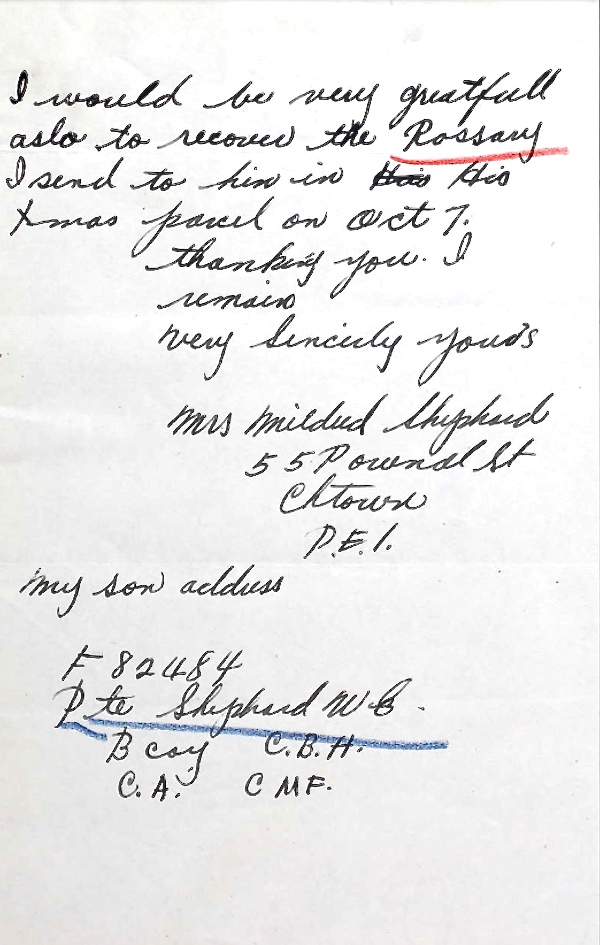 I would be very greatfull
aslo to recover the Rossary
I send to him in His His
Xmas parcel on Oct 7.
thanking you. I
remain
very Sincirly yours
Mrs Mildred Shephard
55 Pownal St
Chtown
P.E.I.
My son address
F 82484
Pte Shephard W B.
B coy C.B.H.
C.A. CMF.